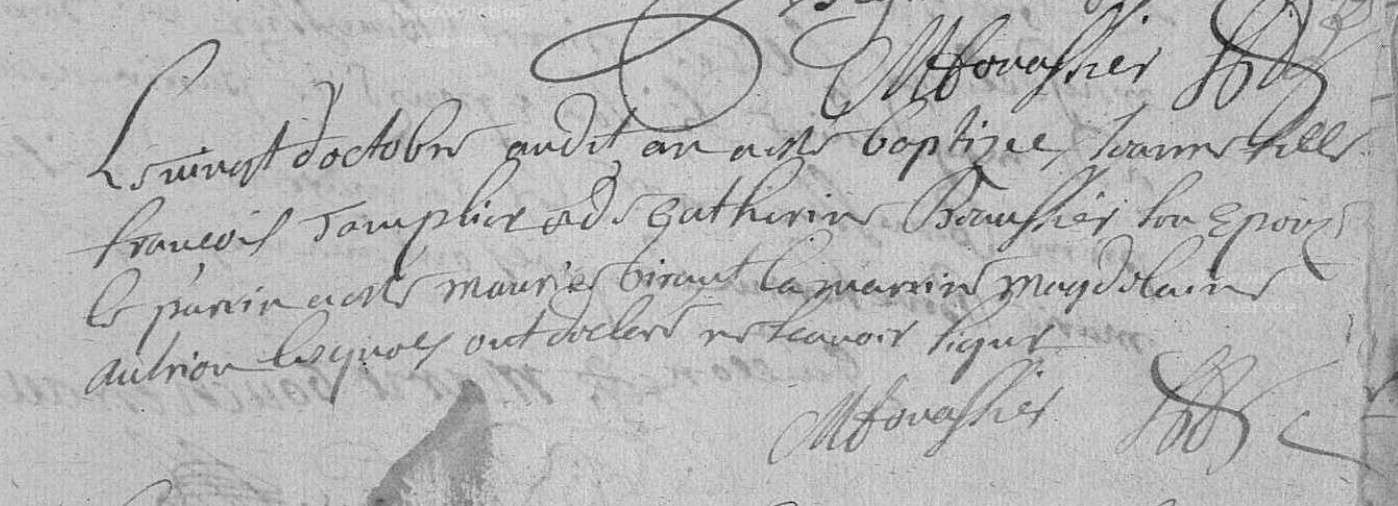 Le vingt doctobre audit an a este baptizee Jeanne fille
francois Templier et de Catherine Boussier son Epouze
le parin a este maurice birault la marrine magdelaine
Aubriou lesquels ont declaré ne scavoir signer